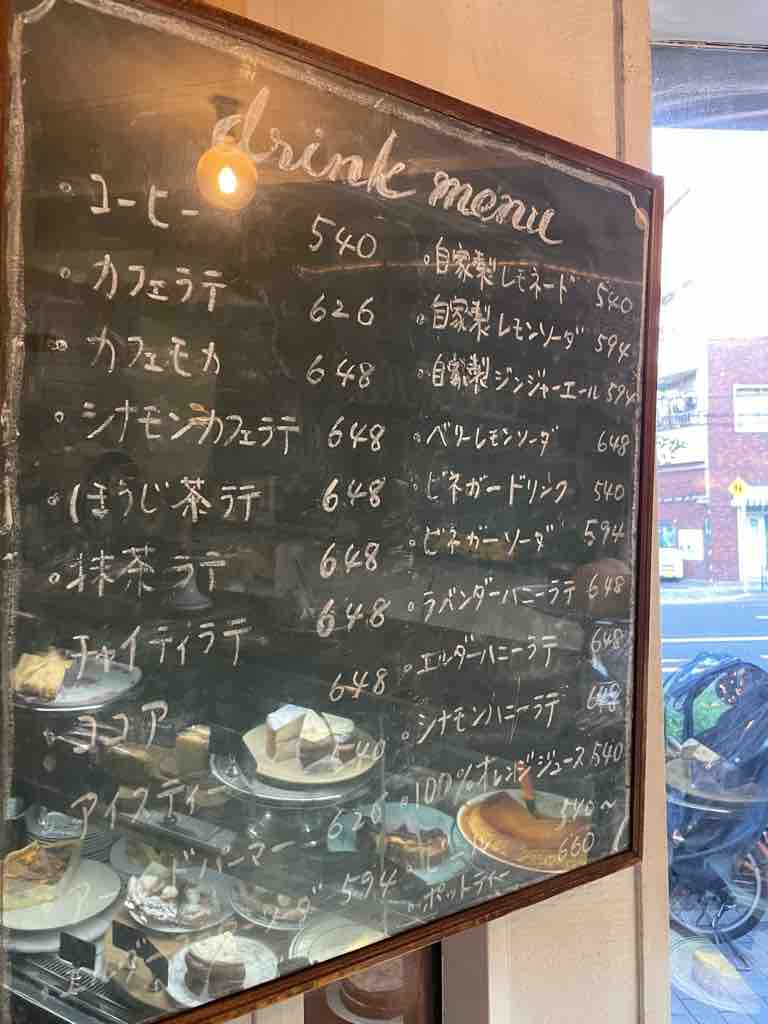 drink menu
コーヒー 540
カフェラテ 626
カフェモカ 648
シナモンカフェラテ 648
ほうじ茶ラテ 648
抹茶ラテ 648
チャイティラテ 648
ココア 648
アイスティー 540
626
594
自家製レモネード 540
自家製レモンソーダ 594
自家製ジンジャーエール 594
ベリーレモンソーダ 648
ビネガードリンク 540
ビネガーソーダ 594
ラベンダーハニーラテ 648
エルダーハニーラテ 648
シナモンハニーラテ 648
100%オレンジジュース 540
540〜
660
ポットティー